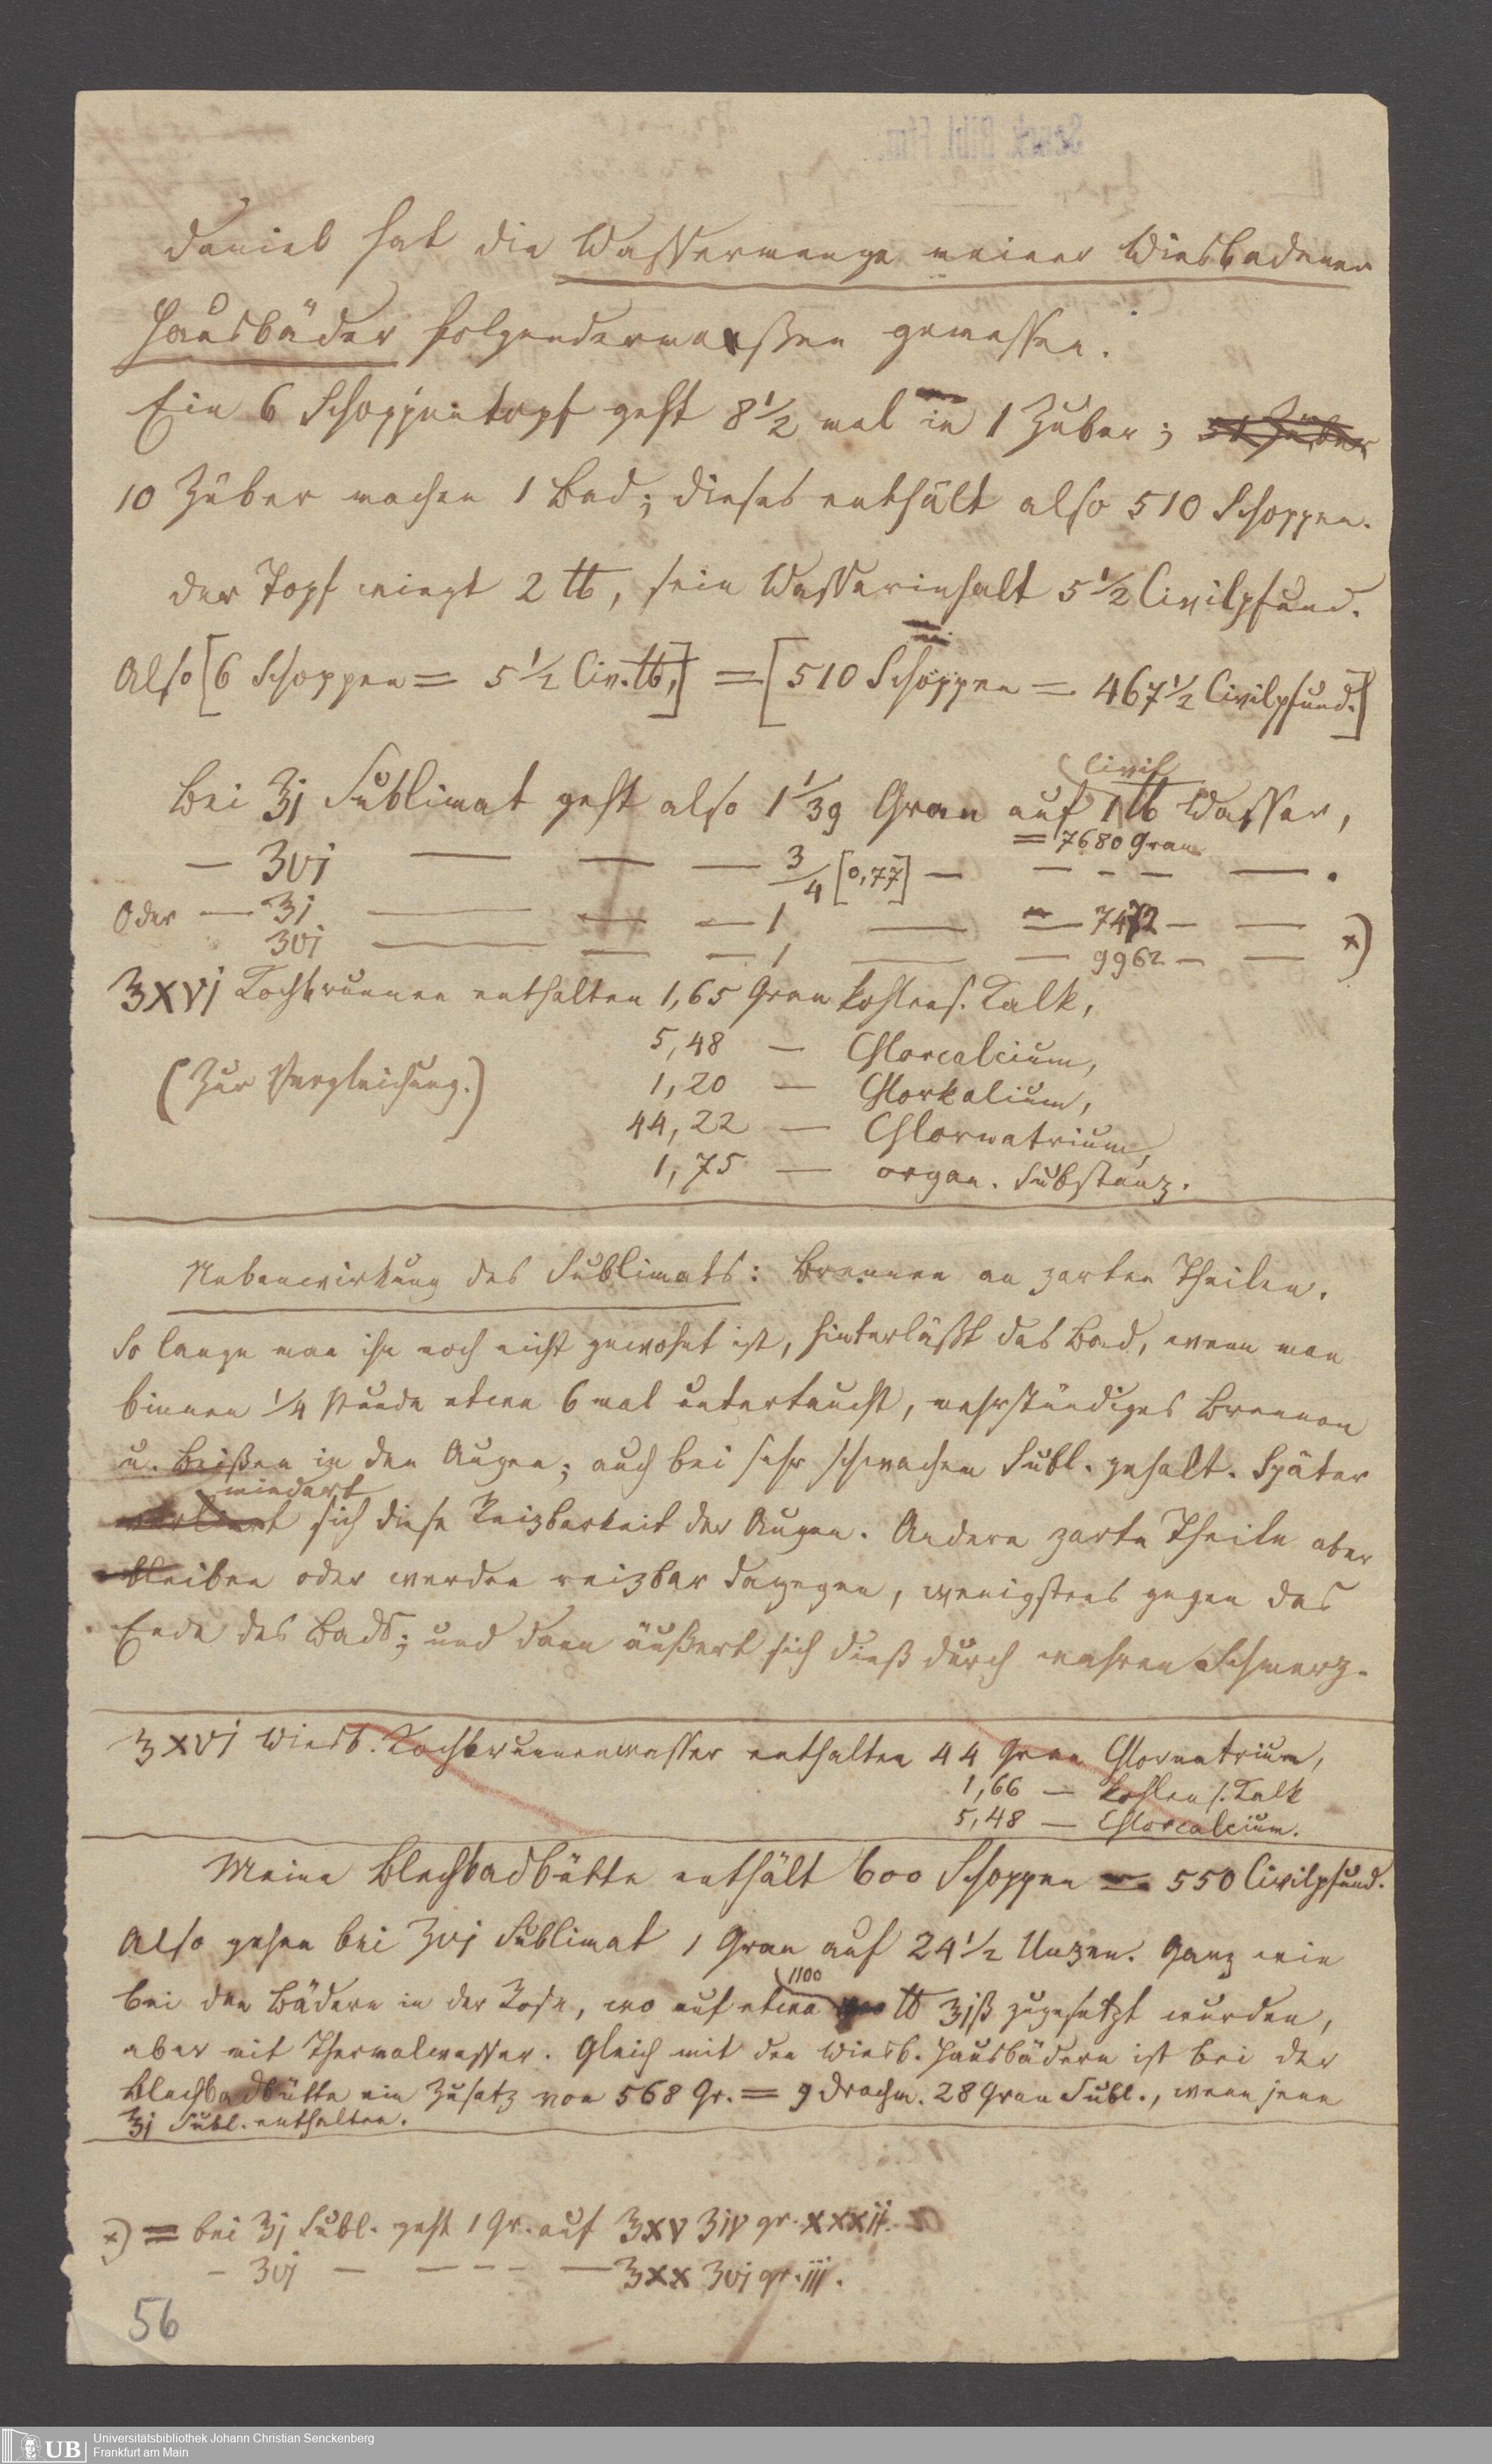 Senck. Bibl. Ffm.
Daniel hat die Wassermenge meiner Wiesbadener
Hausbäder folgendermaßen gemessen.
Ein 6 Schoppentopf geht 8 1/2 mal in 1 Zuber;
10 Züber machen 1 Bad; dieses enthält also 510 Schoppen.
Der Topf wiegt 2 ℔, sein Wasserinhalt 5 1/2 Civilpfund.
Also [6 Schoppen = 5 1/2 Civ. ℔,] = [510 Schoppen = 467 1/2 Civilpfund.]
Civil
Bei ℥j Sublimat geht also 1 1/39 Gran auf 1 ℔ Wasser,
= 7680 Gran
— ʒvj — — — 3/4 [0,77] — — - — — .
Oder — ℥j — — — 1 — = 7472 — —
ʒvj — — — 1 — — 9962 — — ×)
℥xvj Kochbrunnen enthalten 1,65 Gran kohlens. Kalk,
5,48 — Chlorcalcium,
(Zur Vergleichung.)
1,20 — Chlorkalium,
44,22 — Chlornatrium,
1,75 — organ. Substanz.
Nebenwirkung des Sublimats: Brennen an zarten Theilen.
So lange man ihn noch nicht gewohnt ist, hinterläßt das Bad, wenn man
binnen 1/4 Stunde etwa 6 mal untertaucht, mehrstündiges Brennen
u. Beißen in den Augen; auch bei sehr schwachem Subl. gehalt. Später
mindert
verliert sich diese Reizbarkeit der Augen. Andere zarte Theile aber
bleiben oder werden reizbar dagegen, wenigstens gegen das
Ende des Bads; und dann äußert sich dieß durch wahren Schmerz.
℥xvj Wiesb. Kochbrunnenwasser enthalten 44 Gran Chlornatrium,
1,66 — kohlens. Kalk
5,48 — Chlorcalcium.
Meine Blechbadbütte enthält 600 Schoppen = 550 Civilpfund.
Also gehen bei ʒvj Sublimat 1 Gran auf 24 1/2 Unzen. Ganz wie
1100
bei den Bädern in der Rose, wo auf etwa ℔ ℥jß zugesetzt wurden,
aber mit Thermalwasser. Gleich mit den Wiesb. Hausbädern ist bei der
Blechbadbütte ein Zusatz von 568 Gr. = 9 Drachm. 28 Gran Subl., wenn jene
℥j Subl. enthalten.
×) = bei ℥j Subl. geht 1 Gr. auf ℥xv ʒiv gr. xxxij.
— ʒvj — — - - — ℥xx ʒvj gr. iij.
56
UB Universitätsbibliothek Johann Christian Senckenberg
Frankfurt am Main